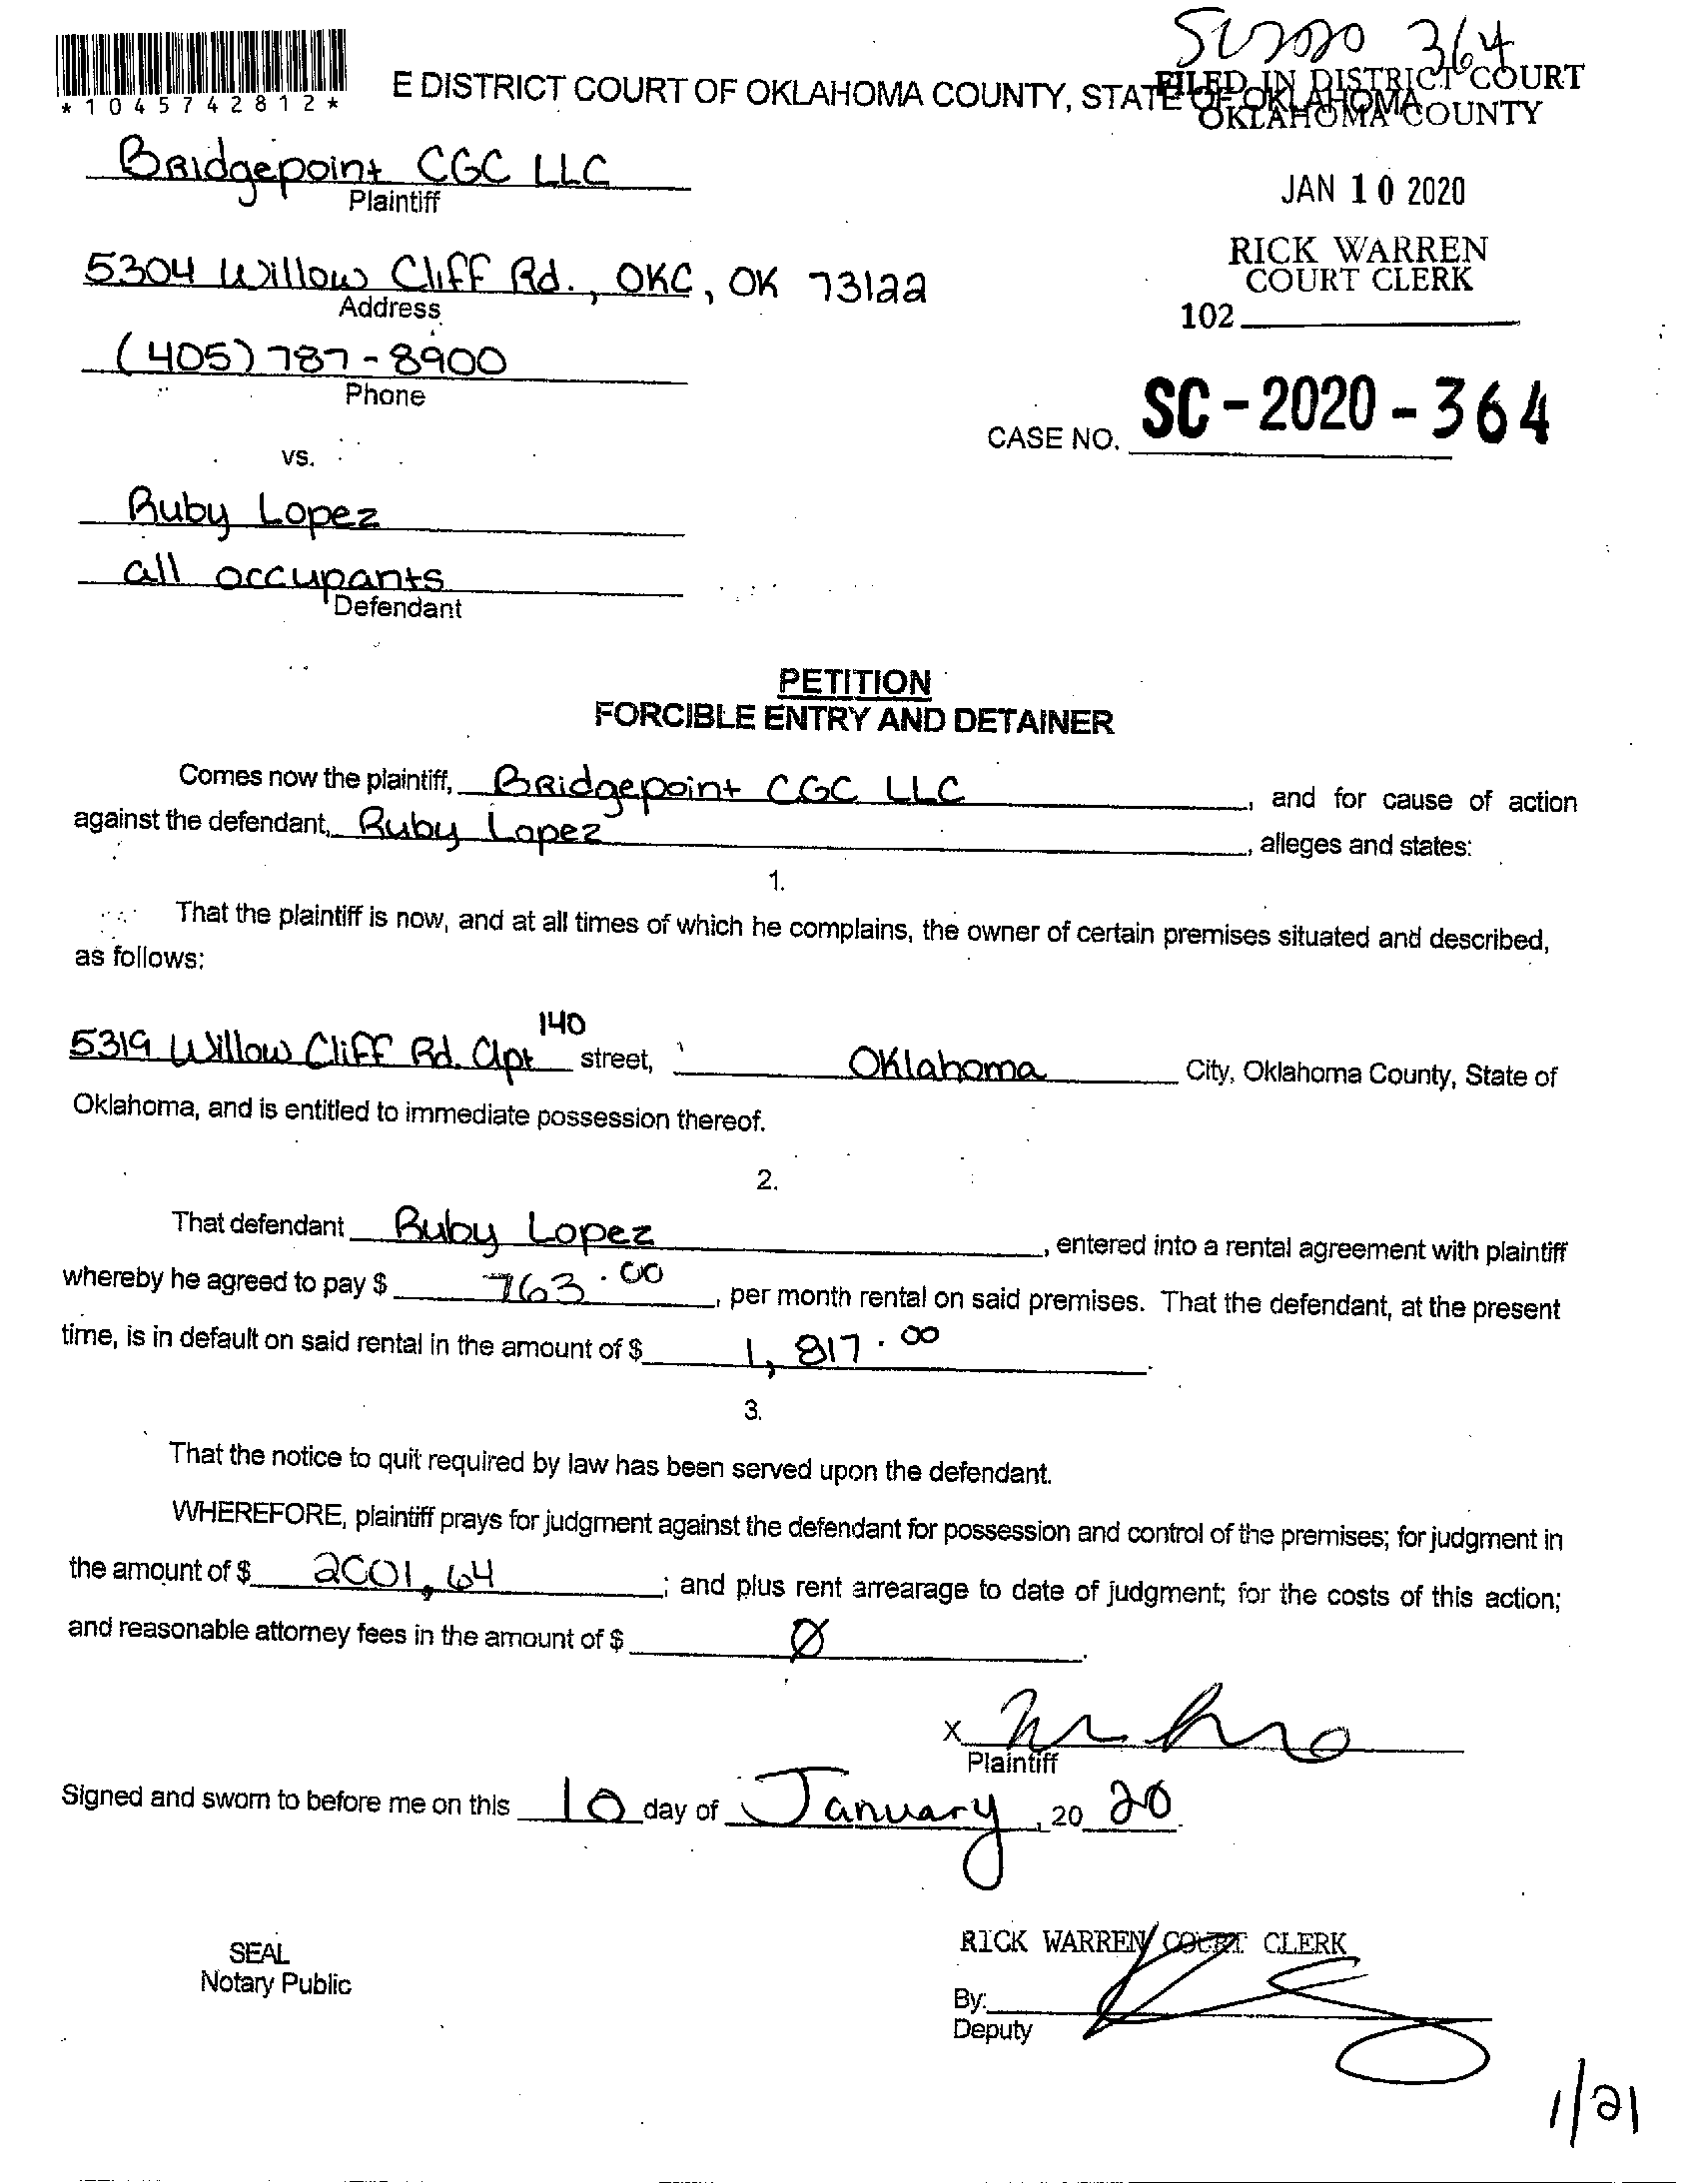 SC2020 364
*1045742812*
E DISTRICT COURT OF OKLAHOMA COUNTY, STATE OF OKLAHOMA
FILED IN DISTRICT COURT
OKLAHOMA COUNTY
Bridgepoint CGC LLC
Plaintiff
JAN 10 2020
5304 Willow Cliff Rd., OKC, OK 73122
Address
RICK WARREN
COURT CLERK
102
(405) 787-8900
Phone
CASE NO. SC-2020-364
vs.
Ruby Lopez
all occupants
Defendant
PETITION
FORCIBLE ENTRY AND DETAINER
Comes now the plaintiff, Bridgepoint CGC LLC, and for cause of action
against the defendant, Ruby Lopez, alleges and states:
1.
That the plaintiff is now, and at all times of which he complains, the owner of certain premises situated and described,
as follows:
5319 Willow Cliff Rd. Apt 140 street, Oklahoma City, Oklahoma County, State of
Oklahoma, and is entitled to immediate possession thereof.
2.
That defendant Ruby Lopez, entered into a rental agreement with plaintiff
whereby he agreed to pay $ 763.00, per month rental on said premises. That the defendant, at the present
time, is in default on said rental in the amount of $ 1,817.00.
3.
That the notice to quit required by law has been served upon the defendant.
WHEREFORE, plaintiff prays for judgment against the defendant for possession and control of the premises; for judgment in
the amount of $ 2001,64; and plus rent arrearage to date of judgment; for the costs of this action;
and reasonable attorney fees in the amount of $ Ø.
X
Plaintiff
Signed and sworn to before me on this 10 day of January, 20 20.
RICK WARREN COURT CLERK
SEAL
Notary Public
By:
Deputy
1/21